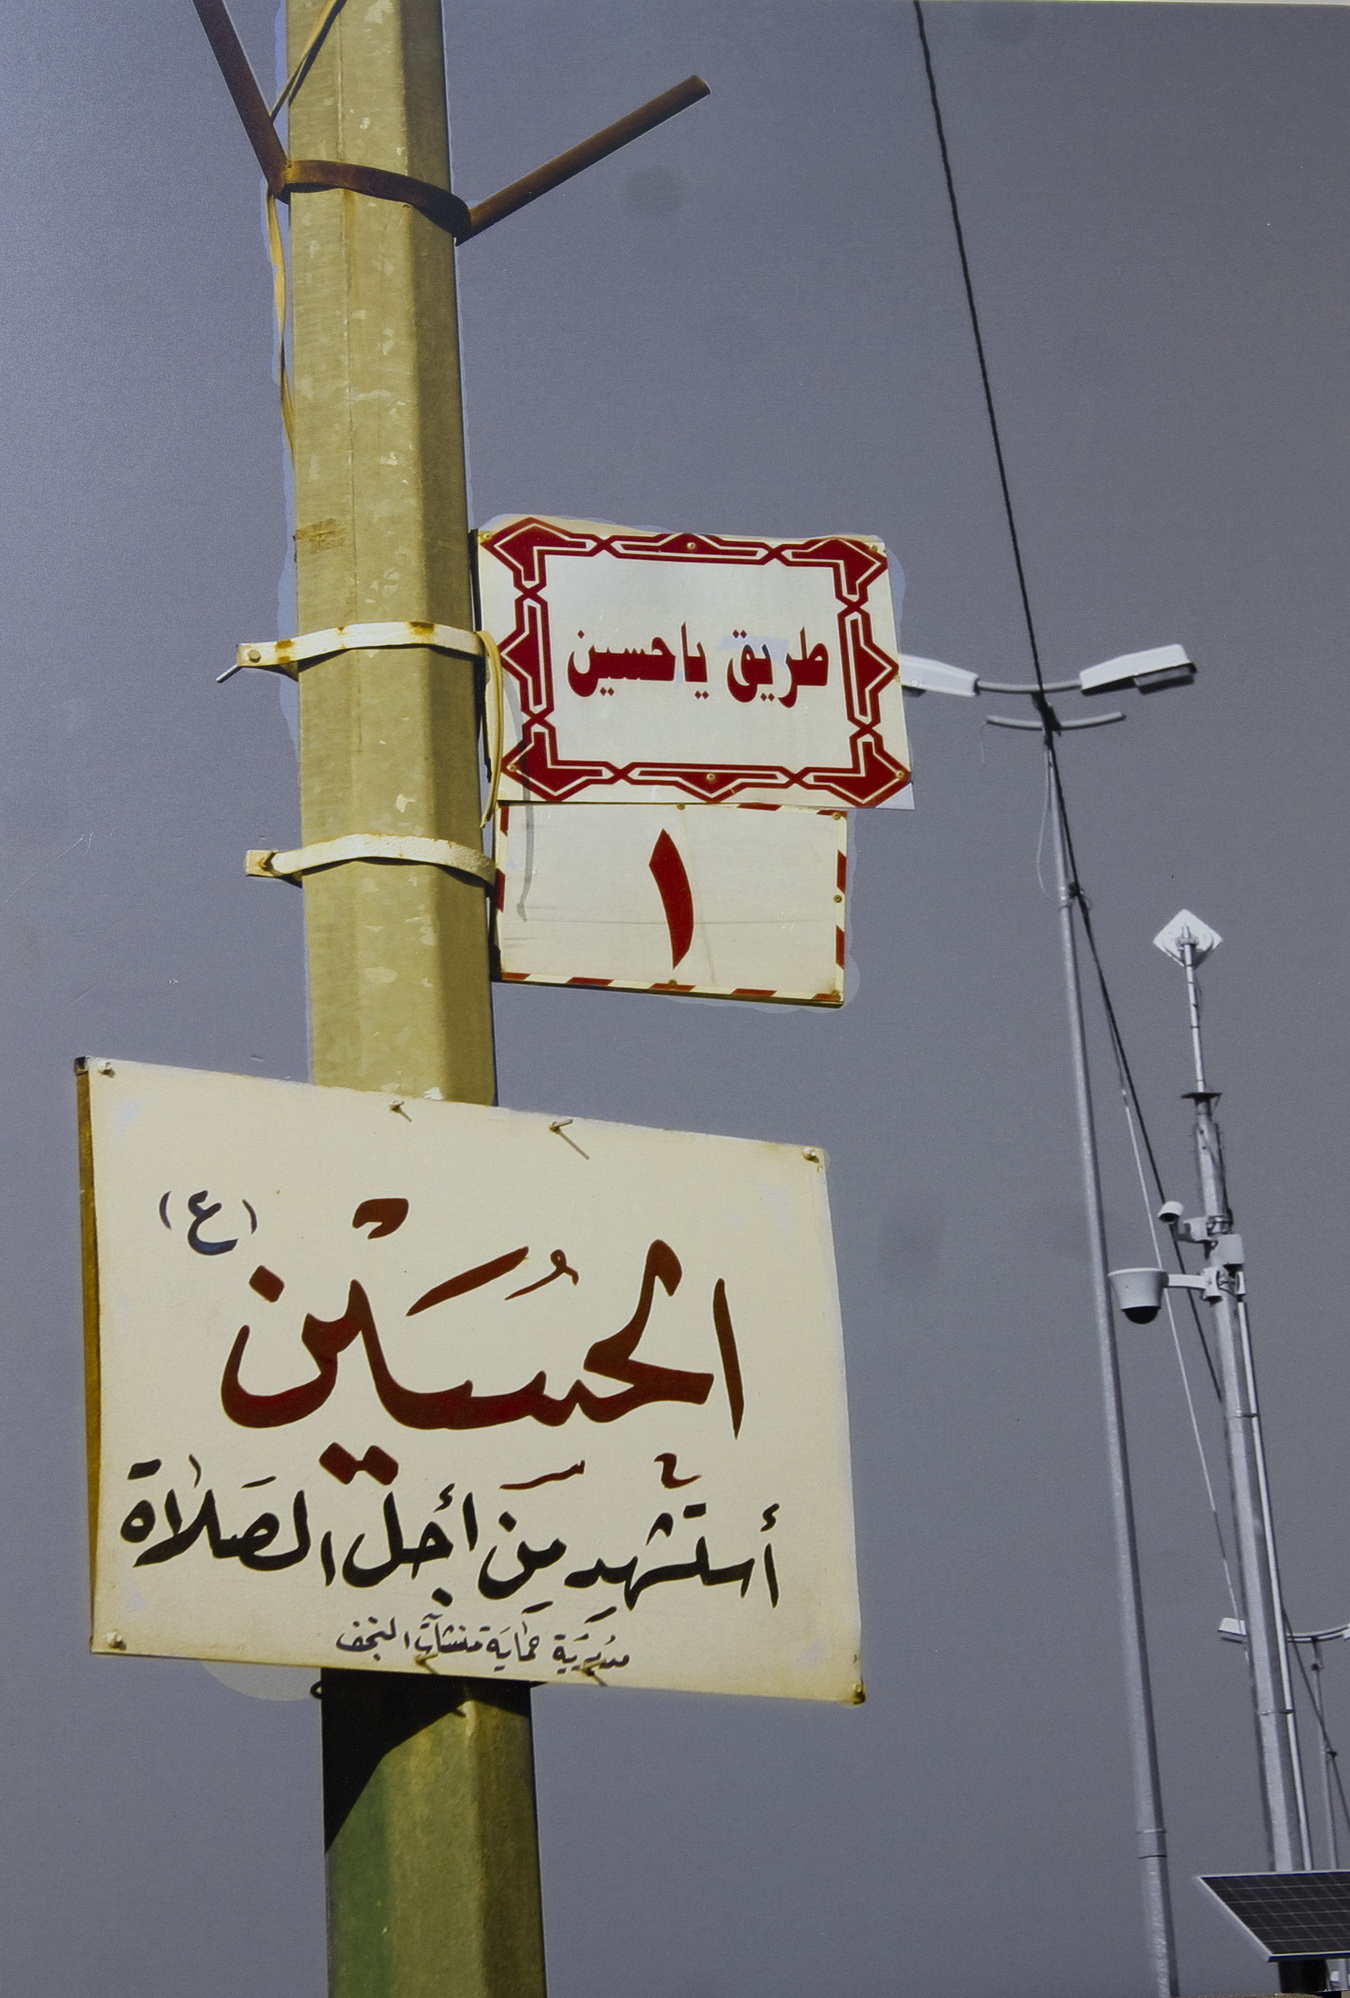 طريق ياحسين
١
الحُسَيْن (ع)
أستشهد مِنّ أجل الصَلاة
مديرية حماية منشآت النجف